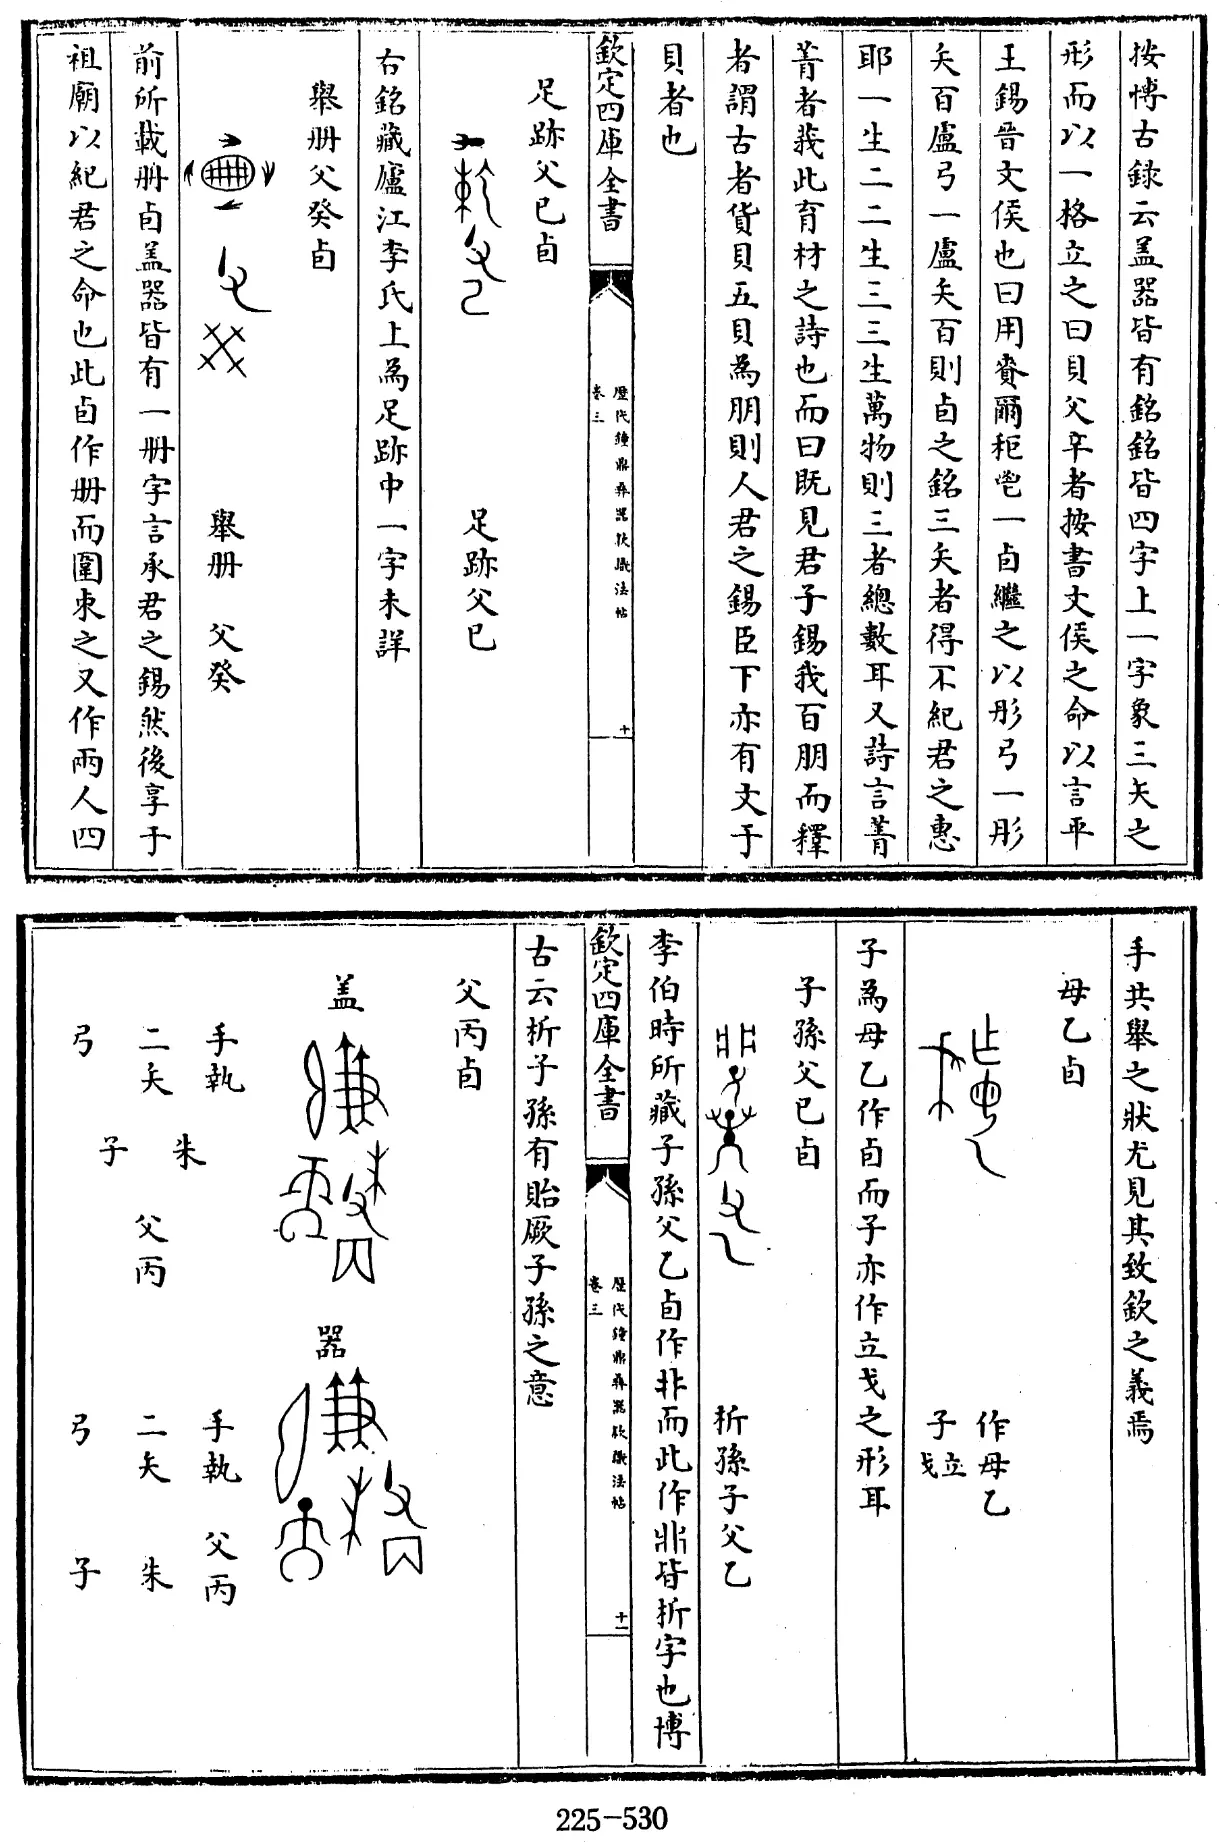 按博古録云蓋器皆有銘銘皆四字上一字象三矢之
形而以一格立之曰貝父辛者按書文侯之命以言平
王錫晉文侯也曰用賚爾秬鬯一卣繼之以彤弓一彤
矢百盧弓一盧矢百則卣之銘三矢者得不紀君之惠
耶一生二二生三三生萬物則三者總數耳又詩言菁
菁者莪此育材之詩也而曰既見君子錫我百朋而釋
者謂古者貨貝五貝為朋則人君之錫臣下亦有丈于
貝者也
欽定四庫全書
歷代鐘鼎彝器款識法帖
卷三
十
足跡父己卣
足跡父己
右銘藏廬江李氏上為足跡中一字未詳
舉冊父癸卣
舉冊 父癸
前所載冊卣蓋器皆有一冊字言承君之錫然後享于
祖廟以紀君之命也此卣作冊而圍束之又作兩人四
手共舉之狀尤見其致欽之義焉
母乙卣
作母乙
子立戈
子為母乙作卣而子亦作立戈之形耳
子孫父己卣
析孫子父乙
李伯時所藏子孫父乙卣作非而此作𣶒皆析字也博
欽定四庫全書
歷代鐘鼎彝器款識法帖
卷三
十一
古云析子孫有貽厥子孫之意
父丙卣
蓋
手執
二矢
弓
朱
子
父丙
器
手執
二矢
弓
父丙
朱
子
225-530